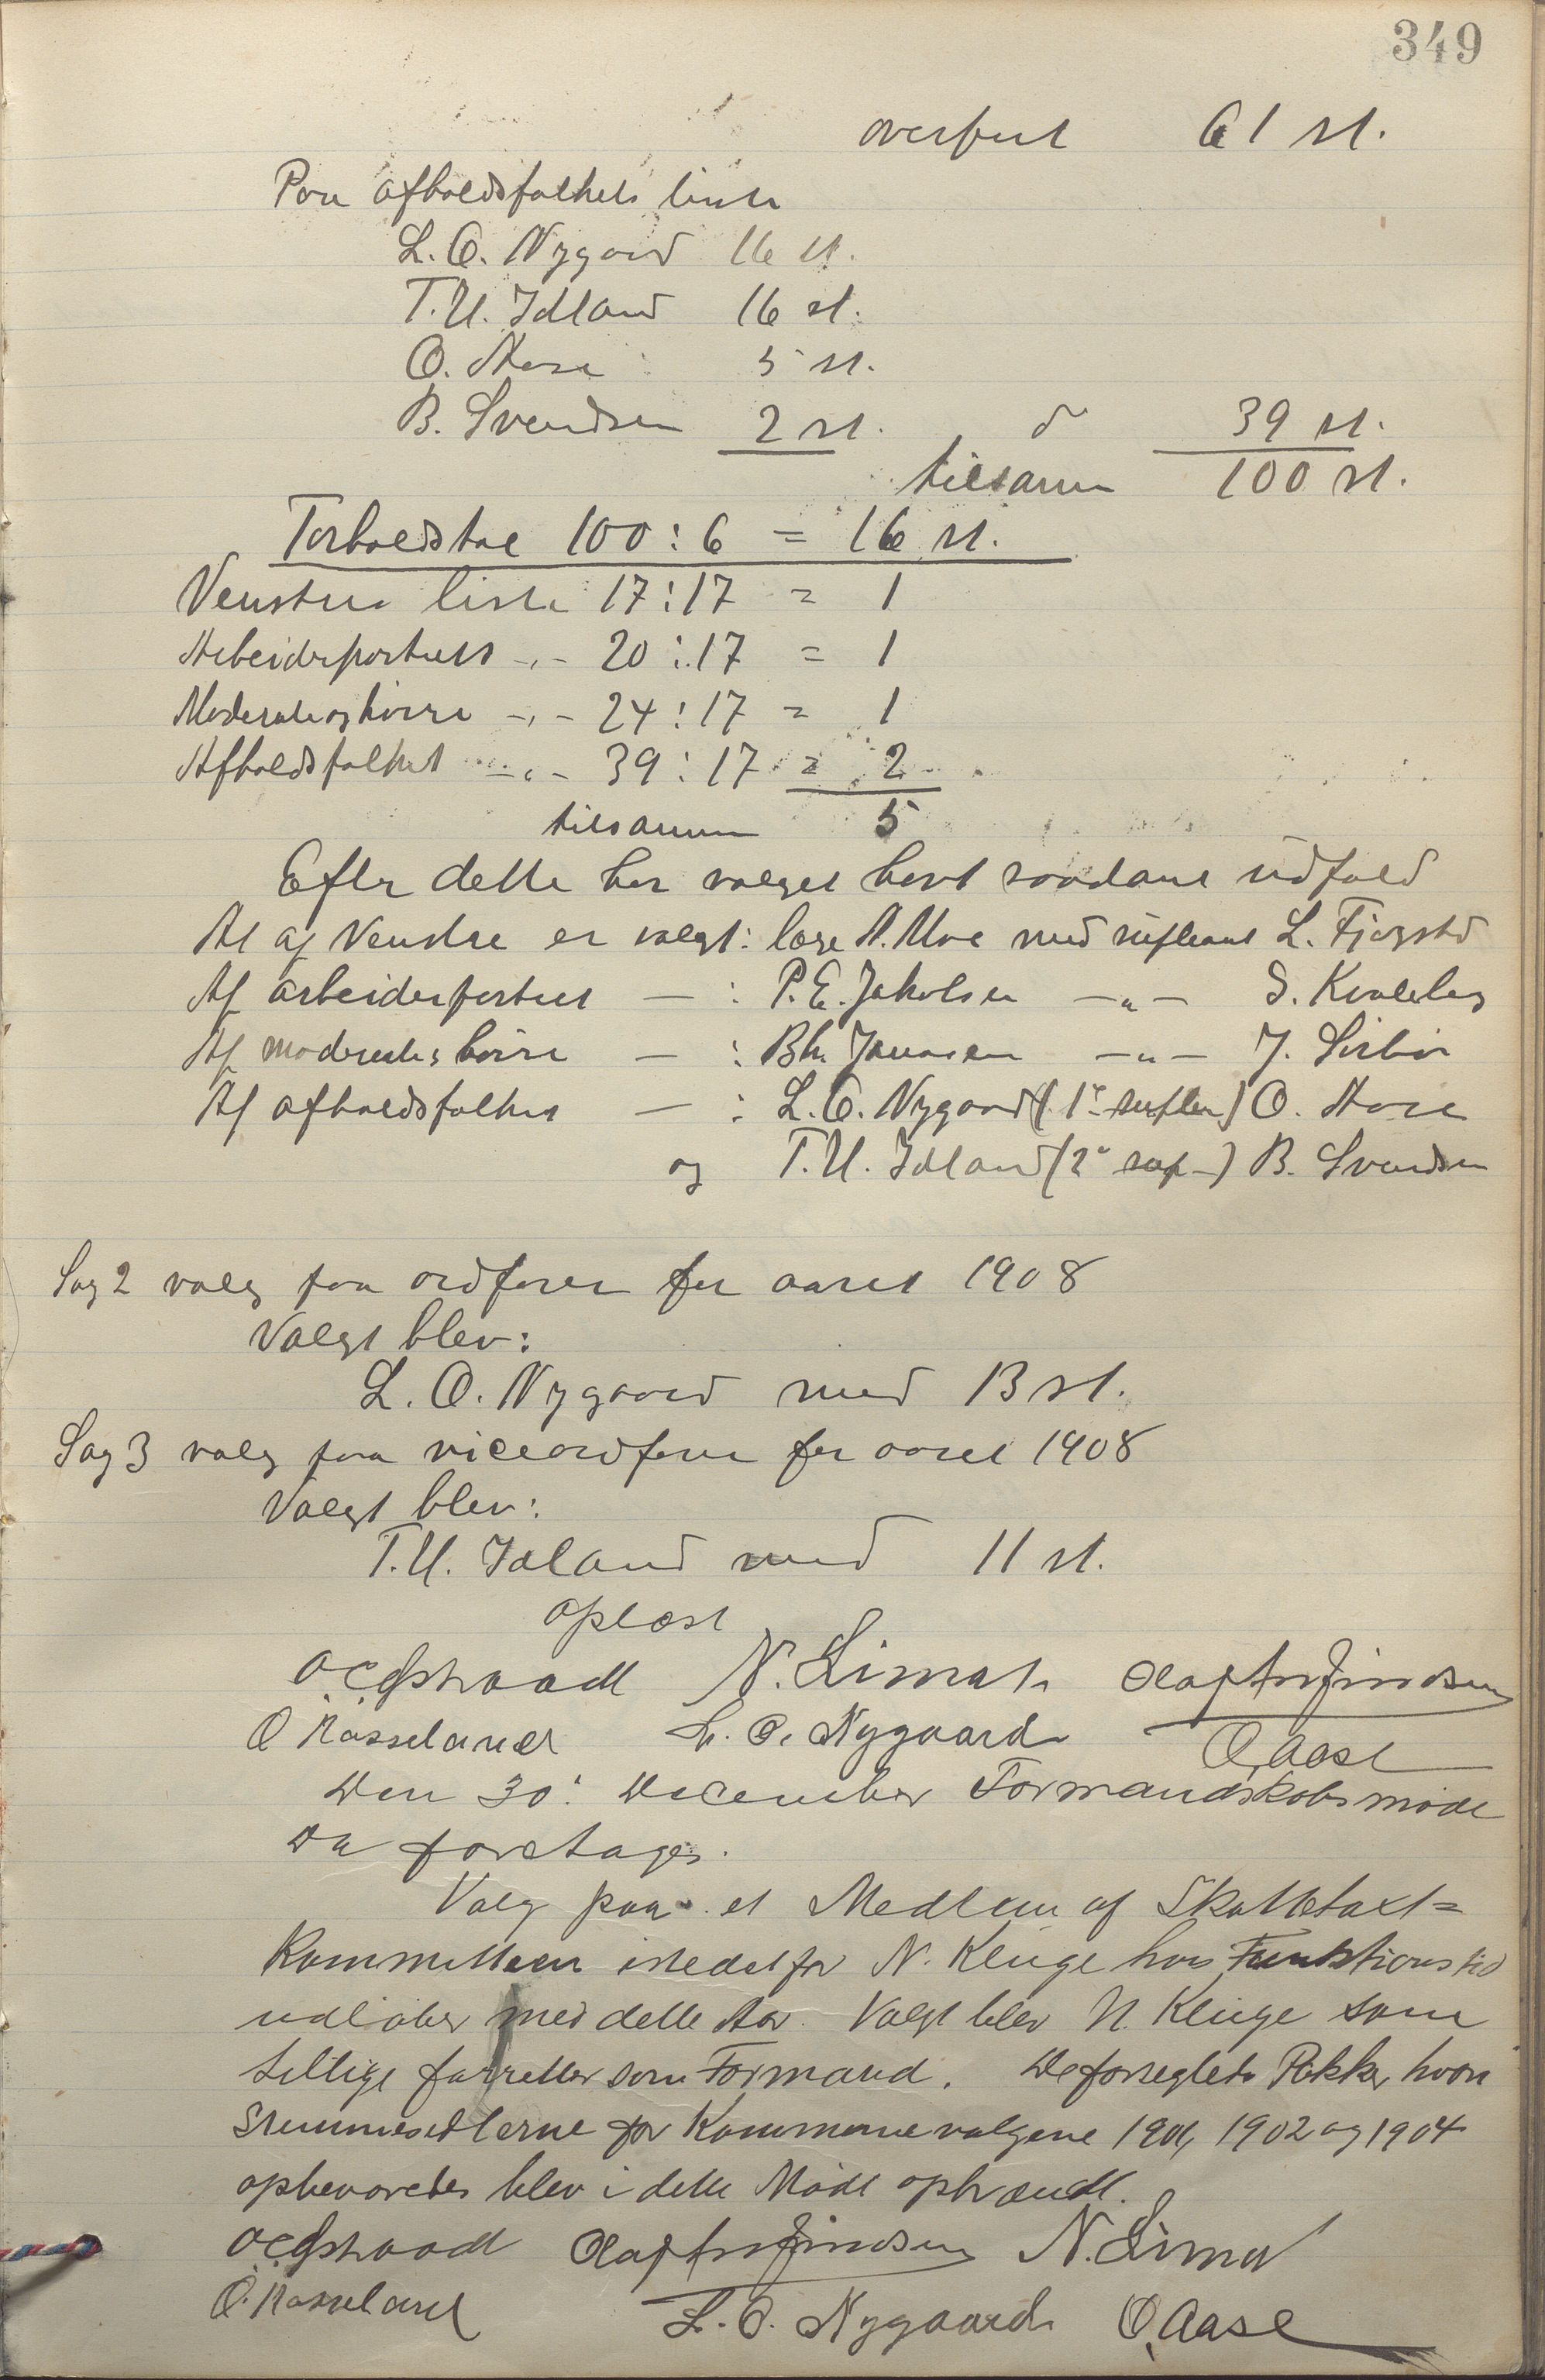 349
overført 61 st.
Paa afholdsfolkets liste
L. O. Nygaard 16 st.
T. U. Idland 16 st.
O. Aase 5 st.
B. Svendsen 2 st. 39 st.
tilsamm 100 st.
Forholdstal 100 : 6 = 16 st.
Venstres liste 17 : 17 = 1
Arbeiderpartiets -„- 20 : 17 = 1
Moderate og høire -„- 24 : 17 = 1
Afholdsfolket -„- 39 : 17 = 2
tilsamm 5
Efter dette har valget havt saadant udfald
At af Venstre er valgt: læge A. Moe med supleant L. Fjogstd
Af arbeiderpartiet — : P. E. Jakobsen —„— S. Kvaleberg
Af moderate & høire — : Jonassen —„— J. Sirbø
Af afholdsfolket — : L. O. Nygaard (1ste suplen) O. Aase
og T. U. Idland (2den sup-) B. Svendsen
Sag 2 valg paa ordfører for aaret 1908
Valgt blev:
L. O. Nygaard med 13 st.
Sag 3 valg paa viceordfører for aaret 1908
Valgt blev:
T. U. Idland med 11 st.
oplæst
N. Lima
O Rosseland L. O. Nygaard O Aase
Den 30' December Formandskabsmøde
Da foretages.
Valg paa et Medlem af Skattetaxt=
Kommitteen istedetfor N. Kluge hvis Funktionstid
udløber med dette Aar. Valgt blev N. Kluge som
tillige forretter som Formand. De forseglede Pakker hvori
Stemmesedlerne for Kommunevalgene 1901, 1902 og 1904
opbevaredes blev i dette Møde opbrændt.
N. Lima
O. Rosseland L. O. Nygaard O Aase